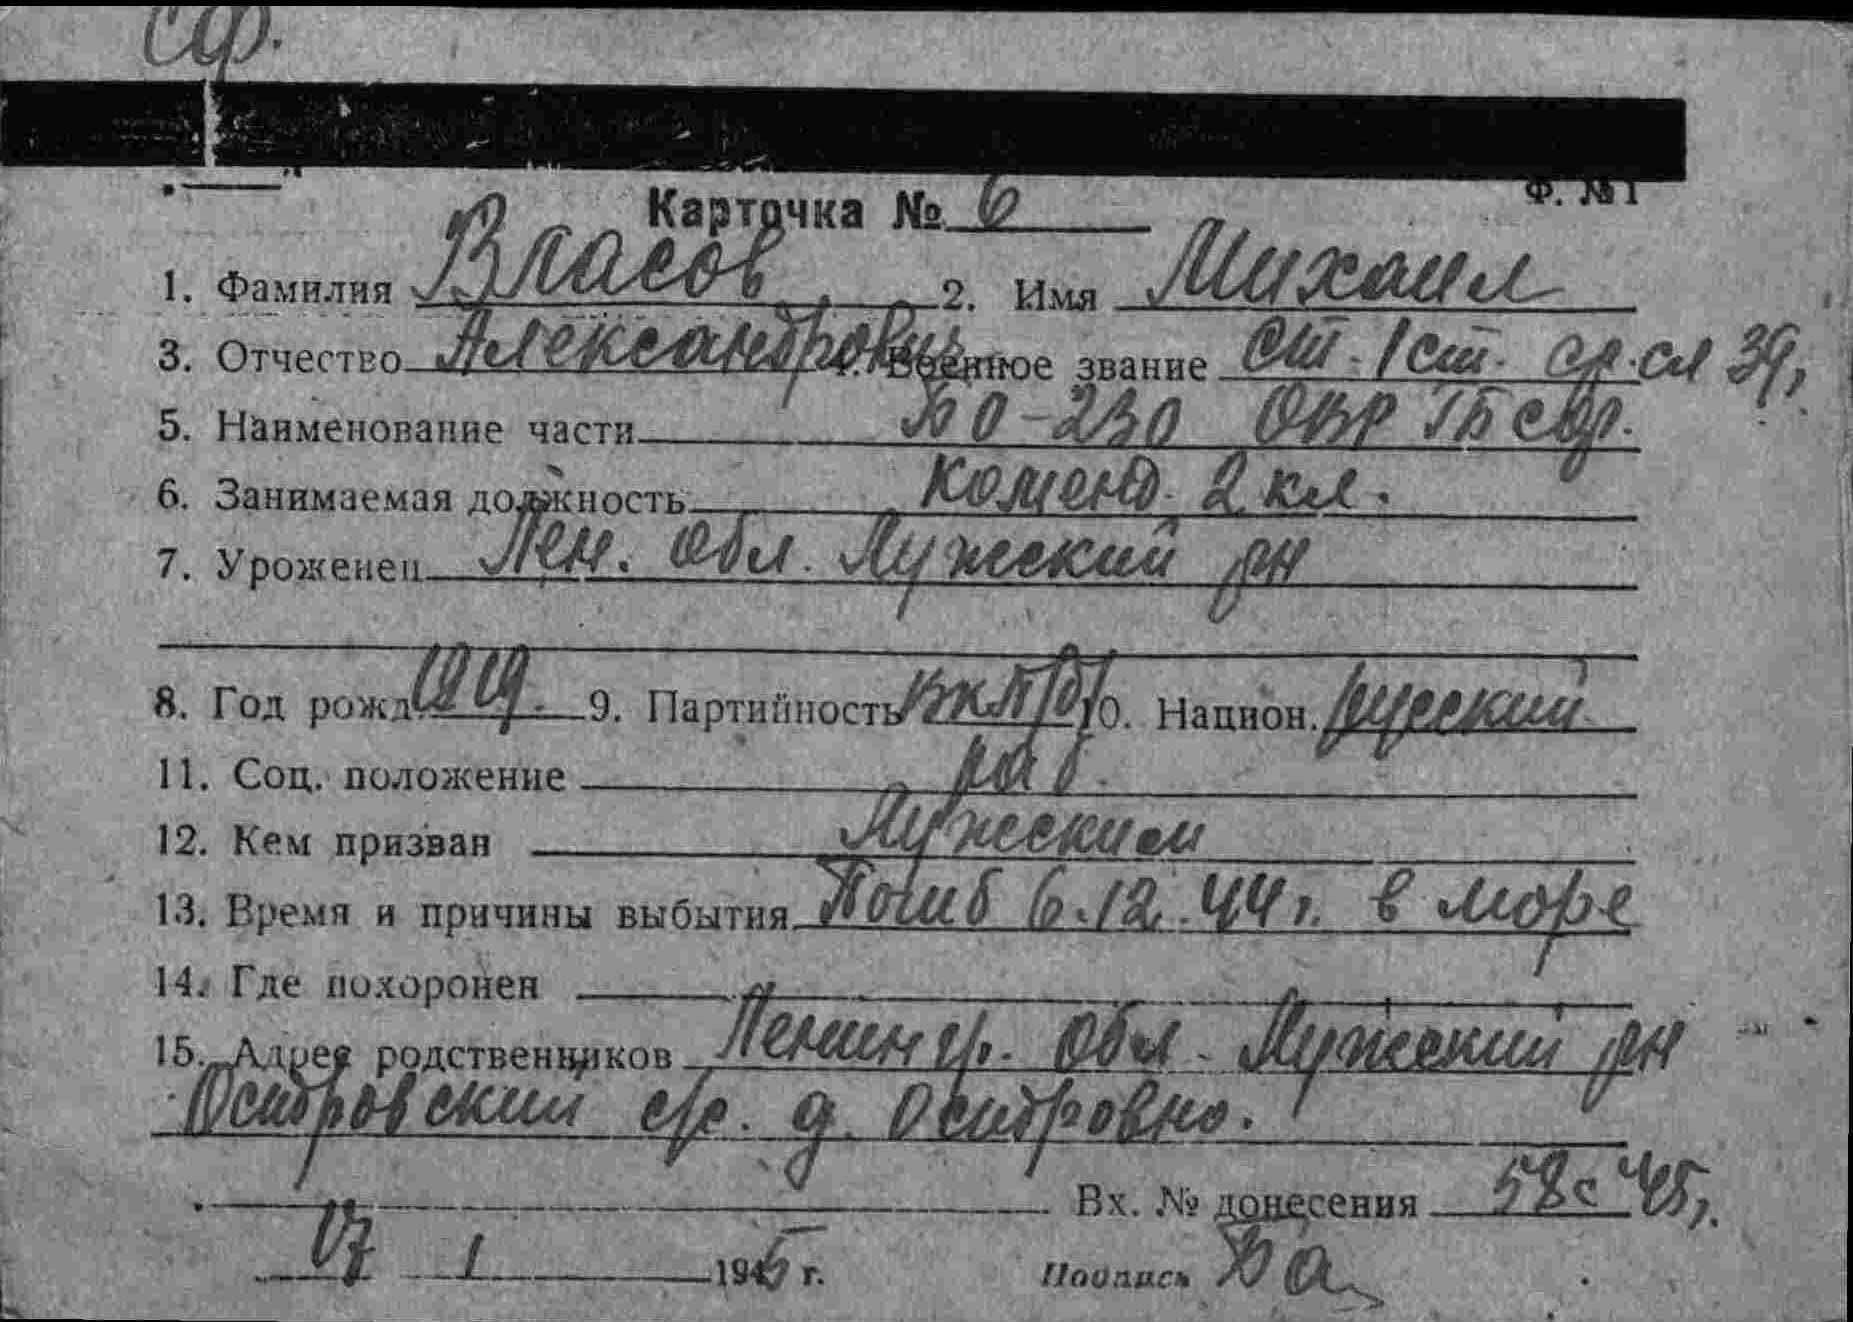 СФ.
Ф. №1
Карточка № 6
1. Фамилия Власов 2. Имя Михаил
3. Отчество Александрович 4. Военное звание ст. 1 ст. ср. сл 39г
5. Наименование части БО-230 ОВР ГБ СФ.
6. Занимаемая должность коменд. 2 кл.
7. Уроженец Лен. обл. Лужский рн
8. Год рожд. 1919. 9. Партийность ВКП(б) 10. Национ. русский
11. Соц. положение раб.
12. Кем призван Лужским
13. Время и причины выбытия Погиб 6.12.44г. в море
14. Где похоронен
15. Адрес родственников Ленингр. обл. Лужский рн
Островский с/с. д. Островно.
Вх. № донесения 58с 45г.
17 1 1945 г. Подпись